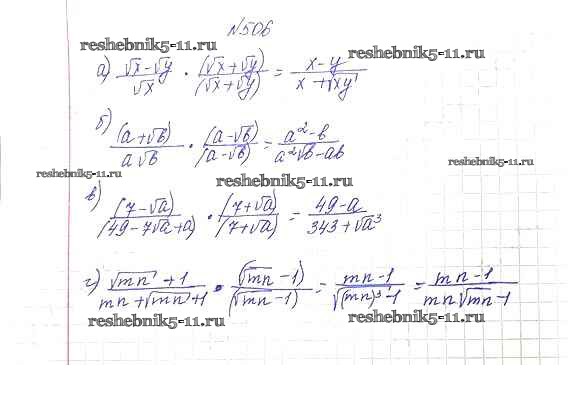 №506
reshebnik5-11.ru
reshebnik5-11.ru
а) (√x-√y)/√x · (√x+√y)/(√x+√y) = (x-y)/(x+√xy)
б) (a+√b)/(a√b) · (a-√b)/(a-√b) = (a²-b)/(a²√b-ab)
reshebnik5-11.ru
reshebnik5-11.ru
reshebnik5-11.ru
в) (7-√a)/(49-7√a+a) · (7+√a)/(7+√a) = (49-a)/(343+√a³)
г) (√mn+1)/(mn+√mn+1) · (√mn-1)/(√mn-1) = (mn-1)/(√(mn)³-1) = (mn-1)/(mn√mn-1)
reshebnik5-11.ru
reshebnik5-11.ru